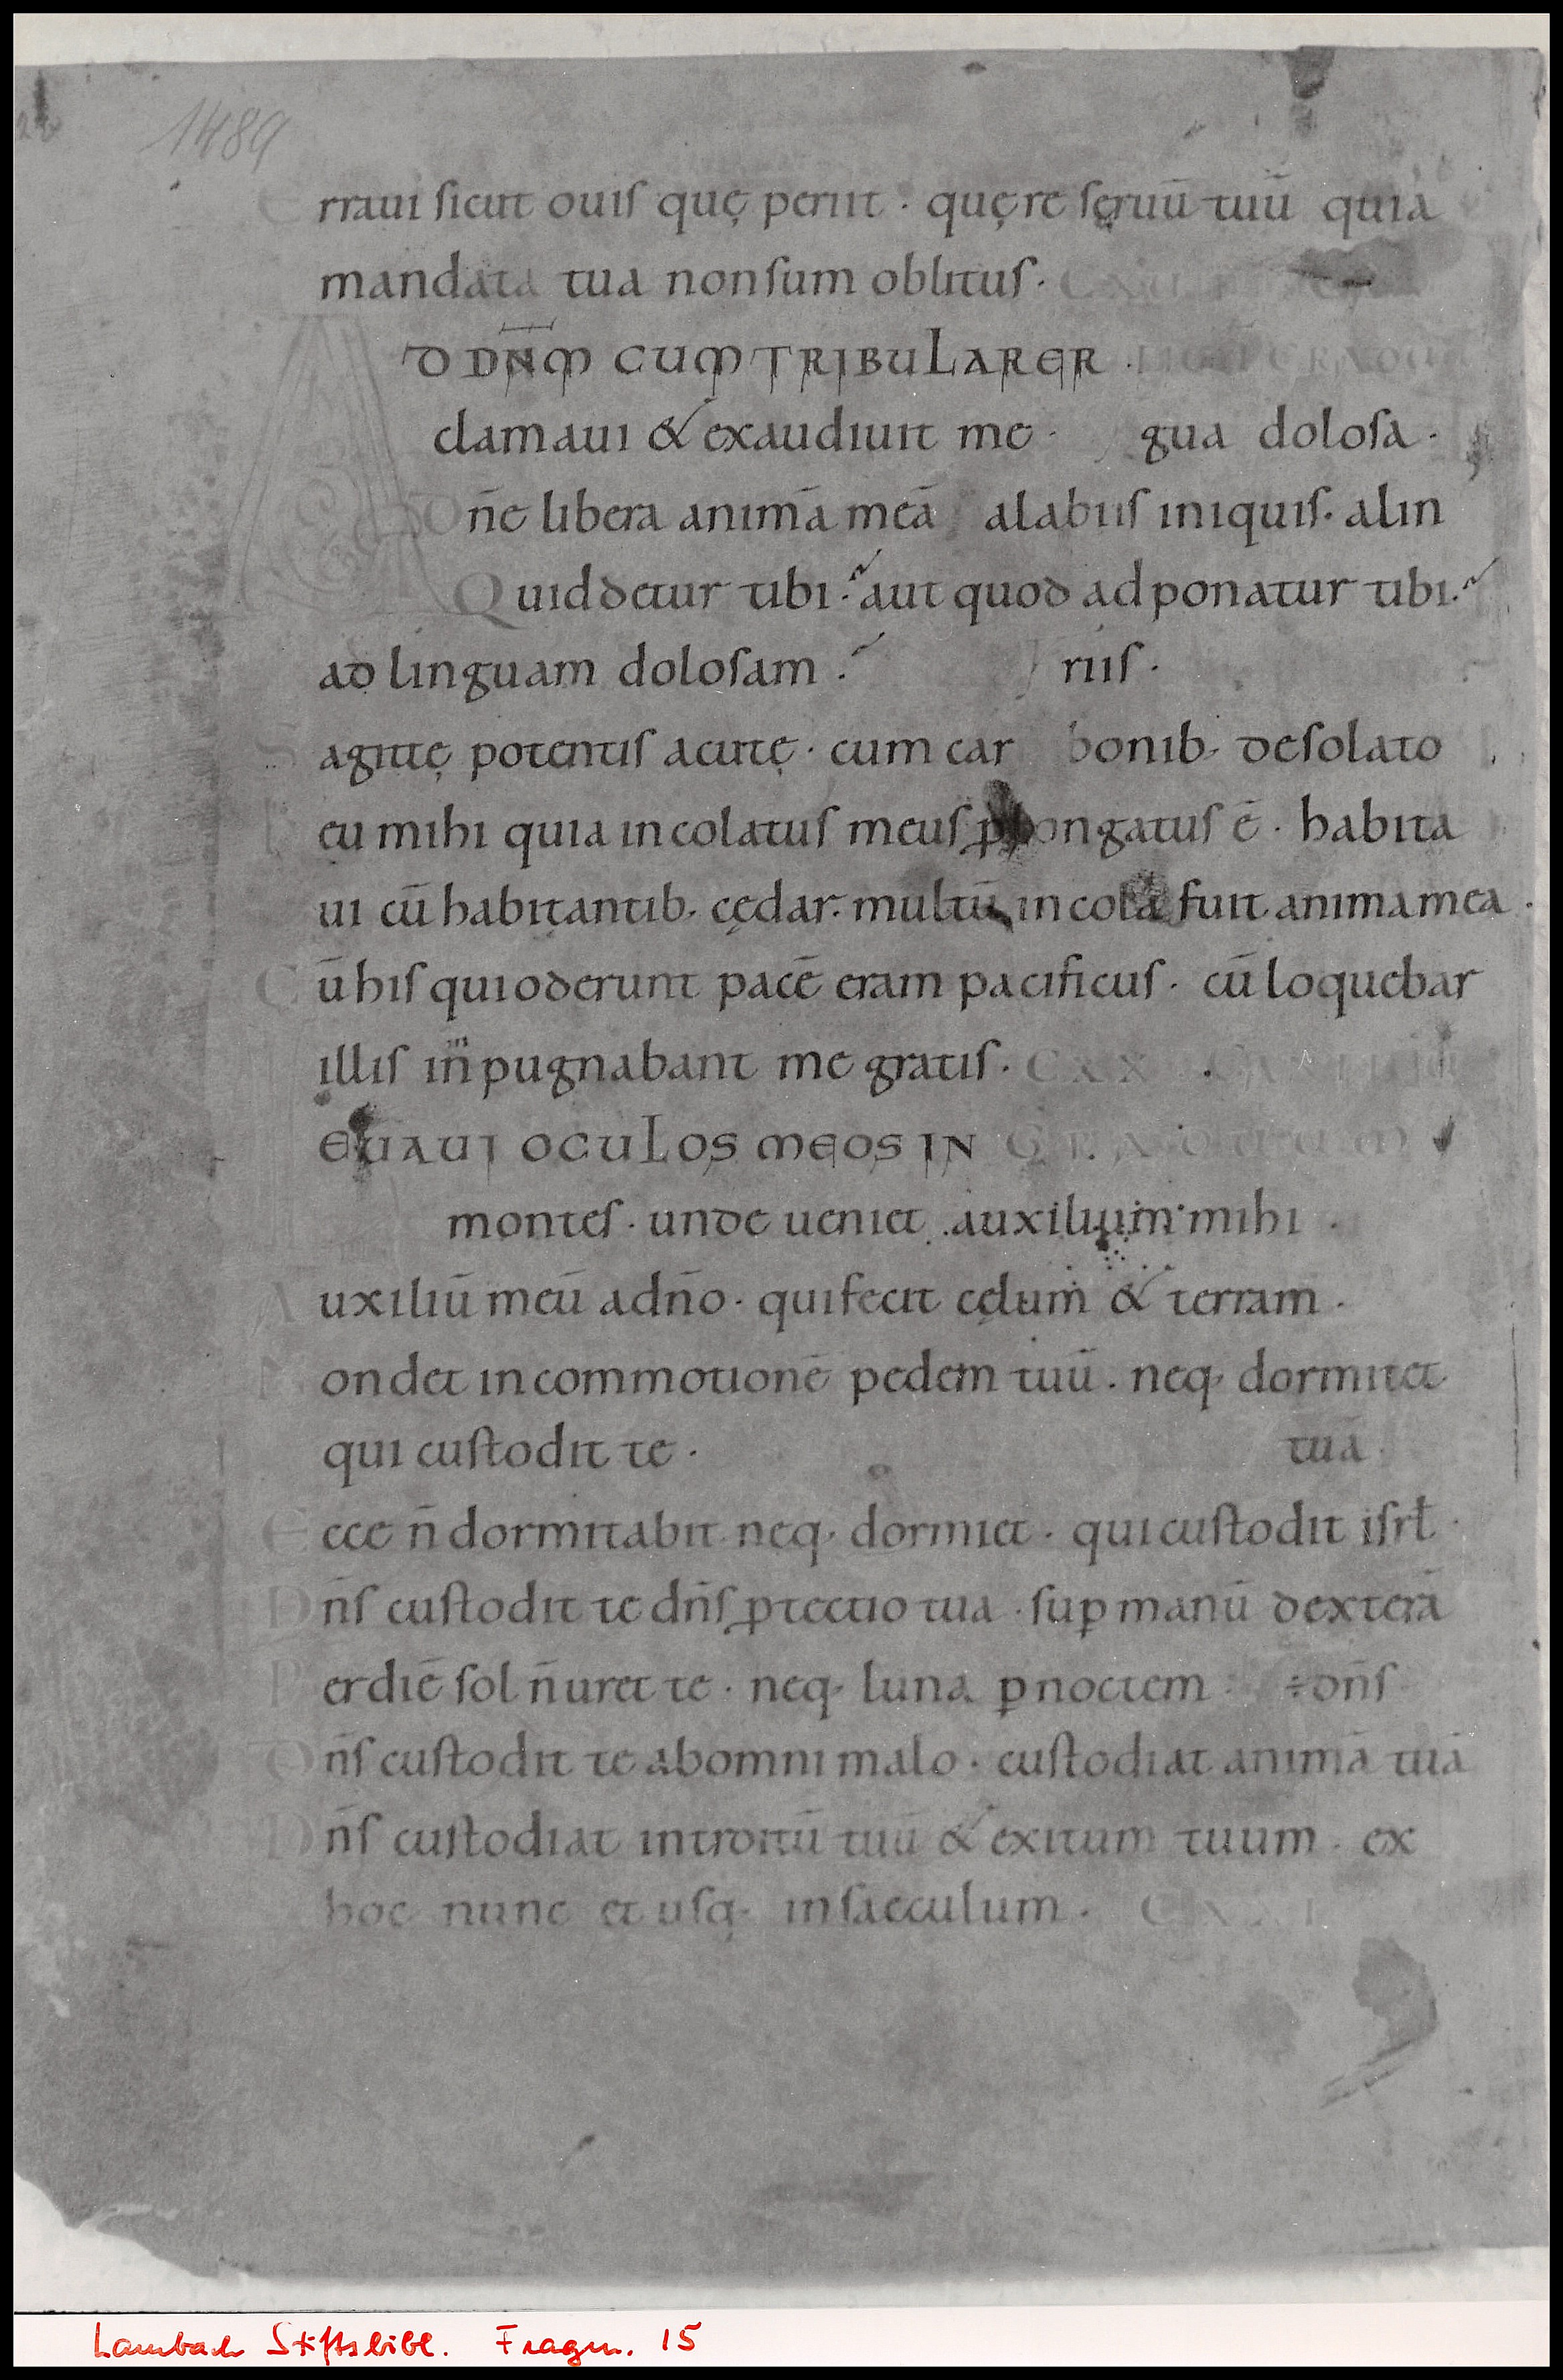 1489
Erraui sicut ouis quę periit · quęre seruū tuū quia
mandata tua non sum oblitus · CXVIIII
AD DN̄M CUM TRIBULARER ·
clamaui & exaudiuit me · gua dolosa ·
Dn̄e libera animā meā a labiis iniquis · a lin
Quid detur tibi ? aut quod adponatur tibi ?
ad linguam dolosam ? riis ·
Sagittę potentis acutę · cum car bonib; desolato
Heu mihi quia incolatus meus ꝓlongatus ē · habita
ui cū habitantib; cędar · multū incola fuit anima mea ·
Cū his qui oderunt pacē eram pacificus · cū loquebar
illis inpugnabant me gratis · CXX
LEUAUI OCULOS MEOS IN GRADUUM
montes · unde ueniet auxilium mihi ·
Auxiliū meū a dn̄o · qui fecit cęlum & terram ·
Non det in commotionē pedem tuū · neq; dormitet
qui custodit te · tuā ·
Ecce n̄ dormitabit neq; dormiet · qui custodit isrł ·
Dn̄s custodit te dn̄s ꝓtectio tua · sup manū dexterā
Per diē sol n̄ uret te · neq; luna ꝑ noctem · ÷ dn̄s
Dn̄s custodit te ab omni malo · custodiat animā tuā
Dn̄s custodiat introitū tuū & exitum tuum · ex
hoc nunc et usq; in saeculum · CXXI
Lambach Stiftsbibl. Fragm. 15